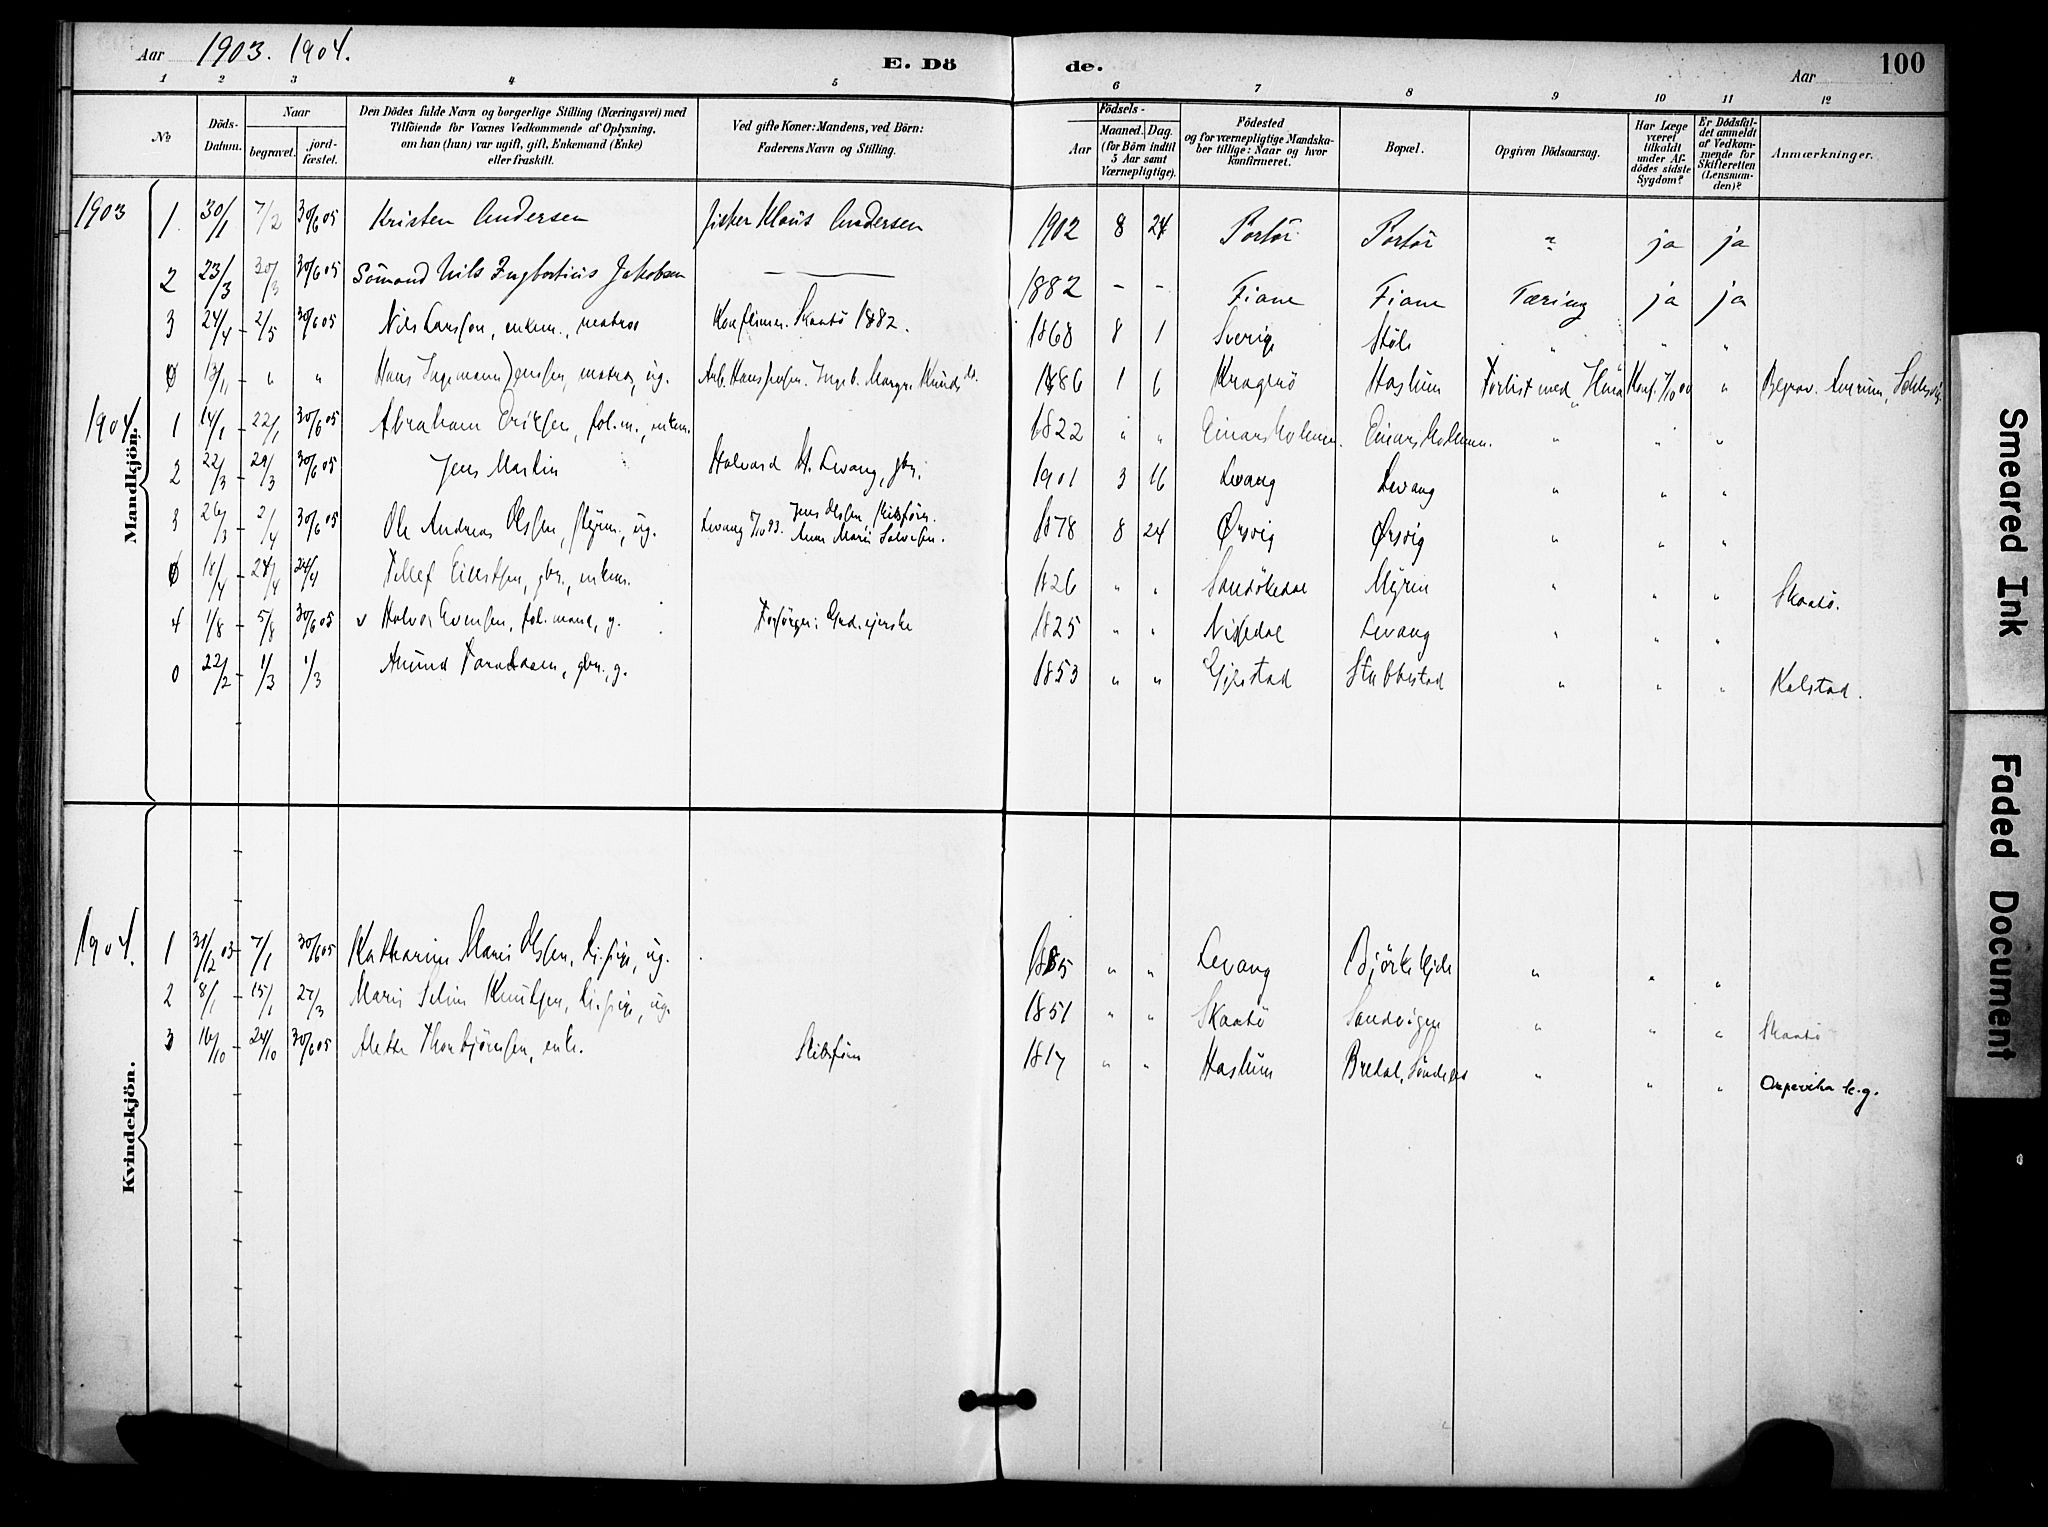 Aar 1903. 1904. E. Dö de. Aar 100
1 2 3 4 5 6 7 8 9 10 11 12
No Döds-Datum. Naar begravet. jord-fæstet. Den Dödes fulde Navn og borgerlige Stilling (Næringsvei) med Tilföiende for Voxnes Vedkommende af Oplysning, om han (hun) var ugift, gift, Enkemand (Enke) eller fraskilt. Ved gifte Koner: Mandens, ved Börn: Faderens Navn og Stilling. Födsels- Aar Maaned. Dag. (for Börn indtil 5 Aar samt Værnepligtige). Födested og for værnepligtige Mandskaber tillige: Naar og hvor konfirmeret. Bopæl. Opgiven Dödsaarsag. Har Læge været tilkaldt under Afdödes sidste Sygdom? Er Dödsfaldet anmeldt af Vedkommende for Skifteretten (Lensmanden)? Anmærkninger.
Mandkjön.
1903 1 30/1 7/2 30/6 05 Kristen Andersen Fisker Klaus Andersen 1902 8 24 Portör Portör " ja ja
2 23/3 30/3 30/6 05 Sömand Nils Ingbertius Jakobsen — 1882 - - Fiane Fiane Tæring ja ja
3 24/4 2/5 30/6 05 Nils Larssen, enkem., matros Konfirmer. Skaatö 1882. 1868 8 1 Sverige Stöle " " "
0 13/11 " " Hans Ingemann Jenssen, matros, ug. Arb. Hans 1886 1 6 Kragerö Haslum Forlist med Konf. 7/10 00 " Begrav. Amrum, Schlesvig.
1904. 1 14/1 22/1 30/6 05 Abraham Eriksen, fol.m., enkem. 1822 " " Einarsholmen. Einarsholmen. " " "
2 22/3 29/3 30/6 05 Jens Martin Halvard H. Levang, gbr. 1901 3 16 Levang Levang " " "
3 26/3 2/4 30/6 05 Ole Andreas Olssen, styrm., ug. Levang 7/10 93. Jens Olssen, Skibsförer. Anne Marie Salvesen. 1878 8 24 Ørsvig Ørsvig " " "
0 18/4 24/4 24/4 Tellef Ellefsen, gbr., enkem. 1826 " " Sandökedal Myren " " " Skaatö.
4 1/8 5/8 30/6 05 v Halvor Evensen, fol.mand, g. Forsörger: Grd.ejerske 1825 " " Nissedal Levang " " "
0 22/2 1/3 1/3 Amund Taraldsen, gbr., g. 1853 " " Gjerstad Stabbestad " " " Kalstad.
Kvindekjön.
1904. 1 31/12 03 7/1 30/6 05 Katharine Marie Olssen, ug. 1885 " " Levang " " "
2 8/1 15/1 27/3 Maren Seline Knudsen, ug. 1851 " " Skaatö Sandvigen " " " Skaatö
3 16/10 24/10 30/6 05 Alette Thorbjörnsen, enke. Skibsförer 1817 " " Haslum Bredal, Sönde " " " Ospevika k.g.
Smeared Ink
Faded Document